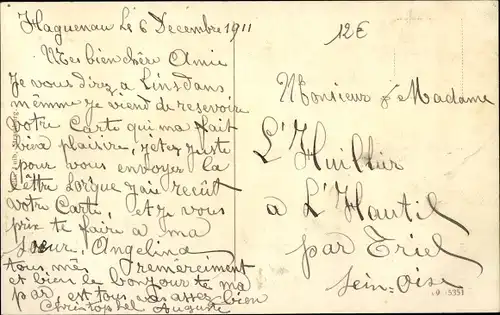 Haguenau Le 6 Décembre 1911
12€
Mes bien chère Amie
Je vous direz à L'insdans
mêmme je viend de resevoire
votre Carte qui ma fait
bien plaisire, jetez juste
pour vous envoyer la
Lettre Lorsque j'ai recût
votre Carte, et je vous
prix te faire a ma
soeur, Angelina
tous mes remerciment
et bien le bonjour te ma
par, est tous vas assez bien
Christophel Auguste
Monsieur & Madame
L'Huillier
a L'Hautil
par Triel
Sein-Oise
5351